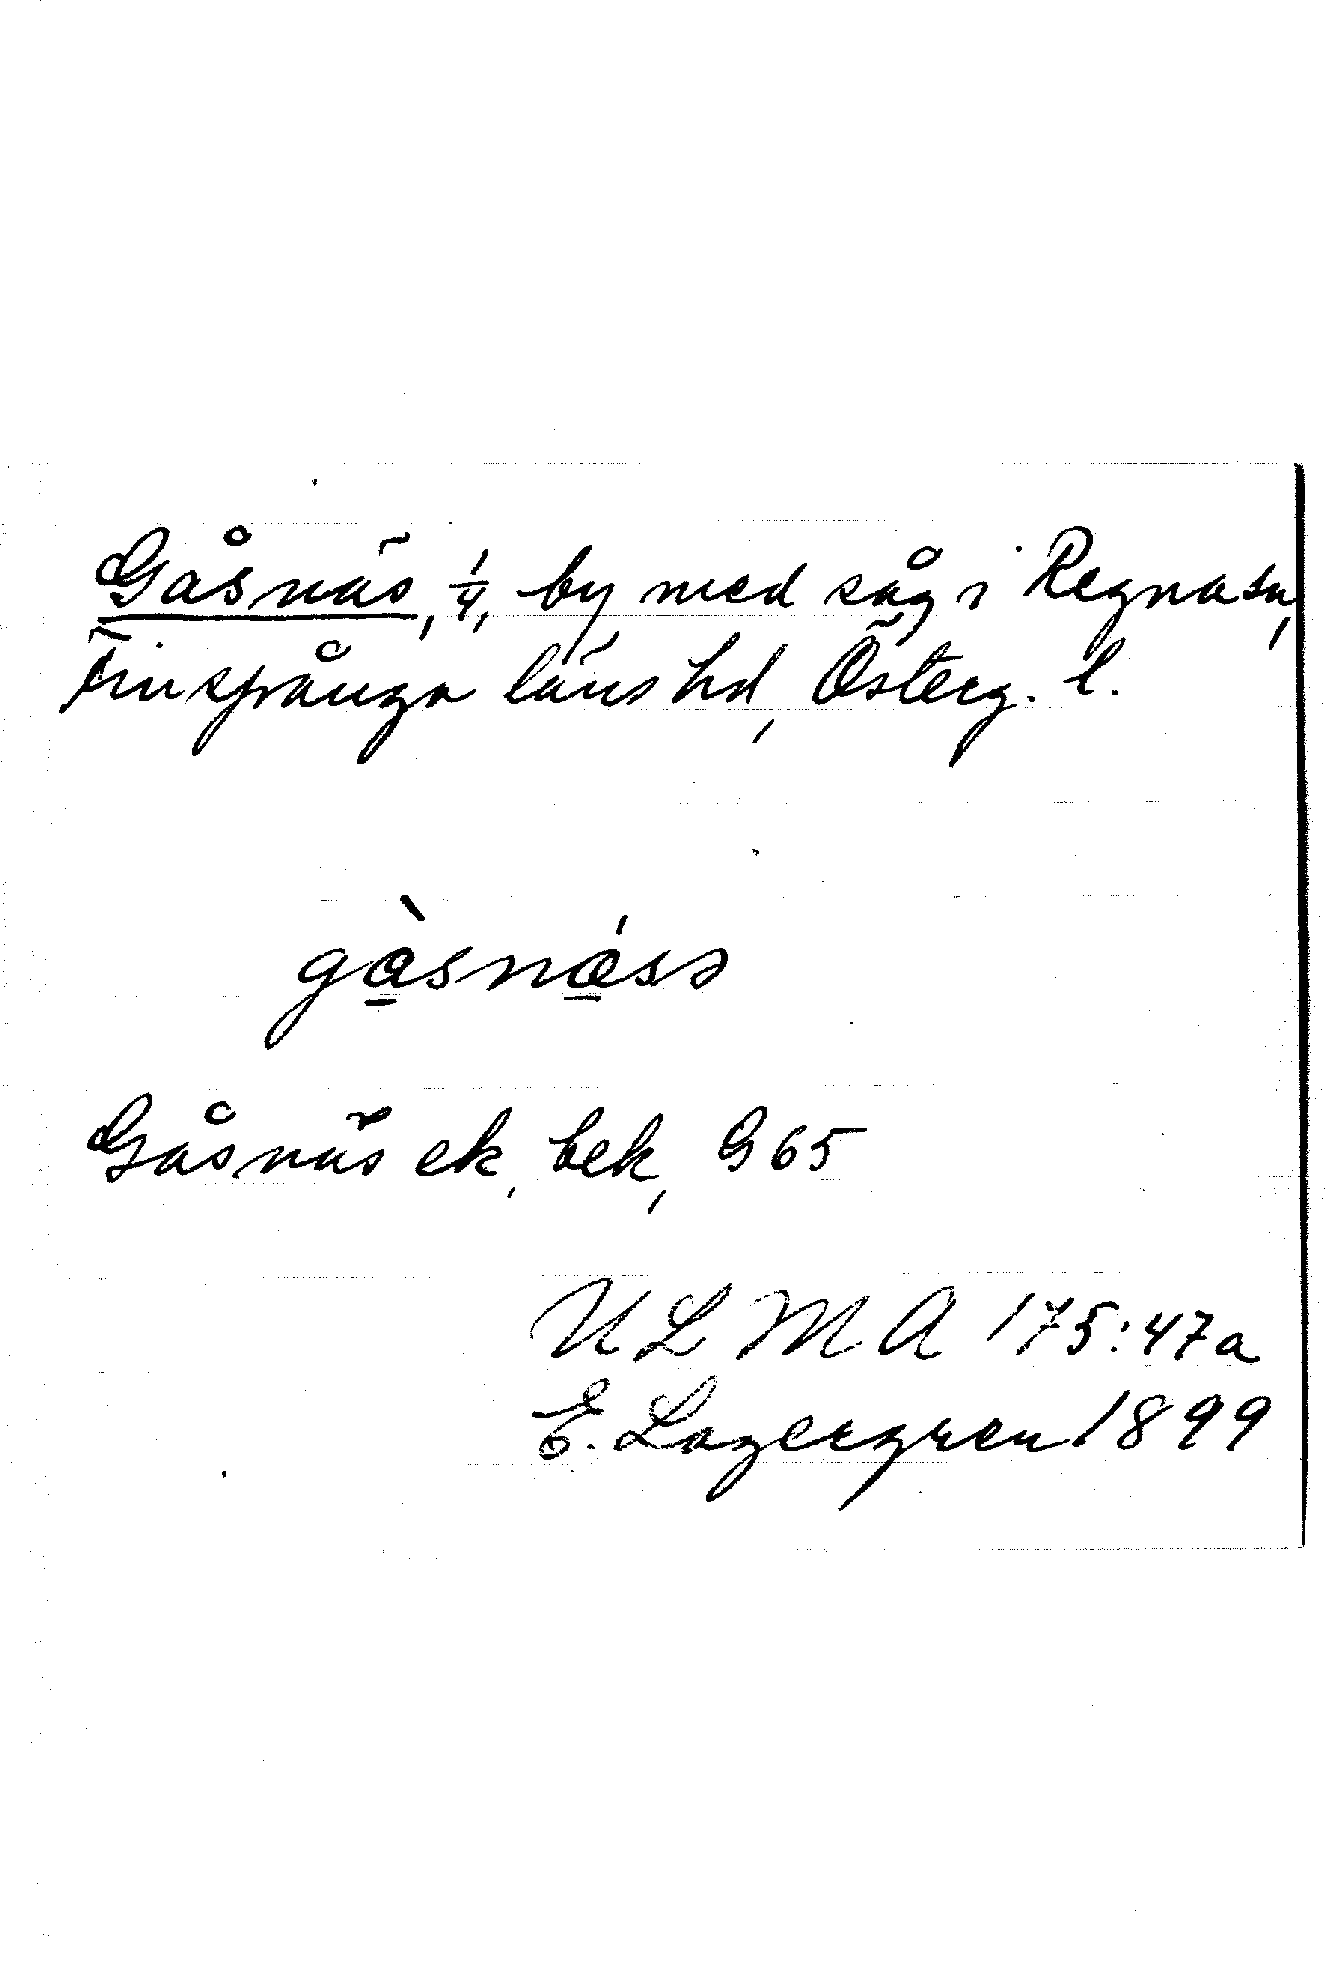 Gåsnäs, 1/4, by med såg i Regna sn,
Finspånga läns hd, Österg. l.
gàsnǽss
Gåsnäs ek, bek, G 65
ULMA 175:47a
E. Lagergren 1899